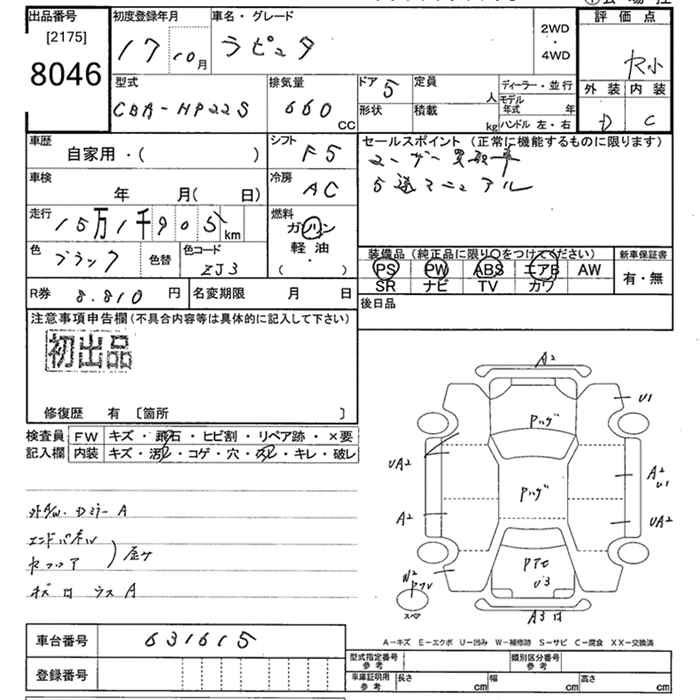 出品番号
[2175]
8046
初度登録年月
17 10月
車名・グレード
ラピュタ
2WD
・
4WD
評価点
外装 内装
D C
型式
CBA-HP22S
排気量
660
CC
ドア 5
形状
定員
人
積載
kg
ディーラー・並行
モデル年式 年
ハンドル 左・右
車歴
自家用・( )
シフト
F5
セールスポイント (正常に機能するものに限ります)
ユーザー買取車
5速マニュアル
車検
年 月( 日)
冷房
AC
走行
15万1千905km
燃料
ガソリン
軽油
( ・ )
色
ブラック
色替
色コード
ZJ3
装備品(純正品に限り○をつけてください)
PS PW ABS エアB AW
SR ナビ TV カワ
新車保証書
有・無
R券 8.810 円
名変期限 月 日
後日品
注意事項申告欄(不具合内容等は具体的に記入して下さい)
初出品
修復歴 有 〔箇所 〕
検査員
記入欄
FW キズ・飛石・ヒビ割・リペア跡・×要
内装 キズ・汚れ・コゲ・穴・スレ・キレ・破レ
A2
U1
Pハゲ
UA2
Pハゲ
A2
U1
A2
UA2
W2
スペア
U3
A3
A-キズ E-エクボ U-凹み W-補修跡 S-サビ C-腐食 XX-交換済
エンドパネル
車台番号 631615
登録番号
型式指定番号
参考
類別区分番号
参考
車庫証明用
参考
長さ cm
幅 cm
高さ cm